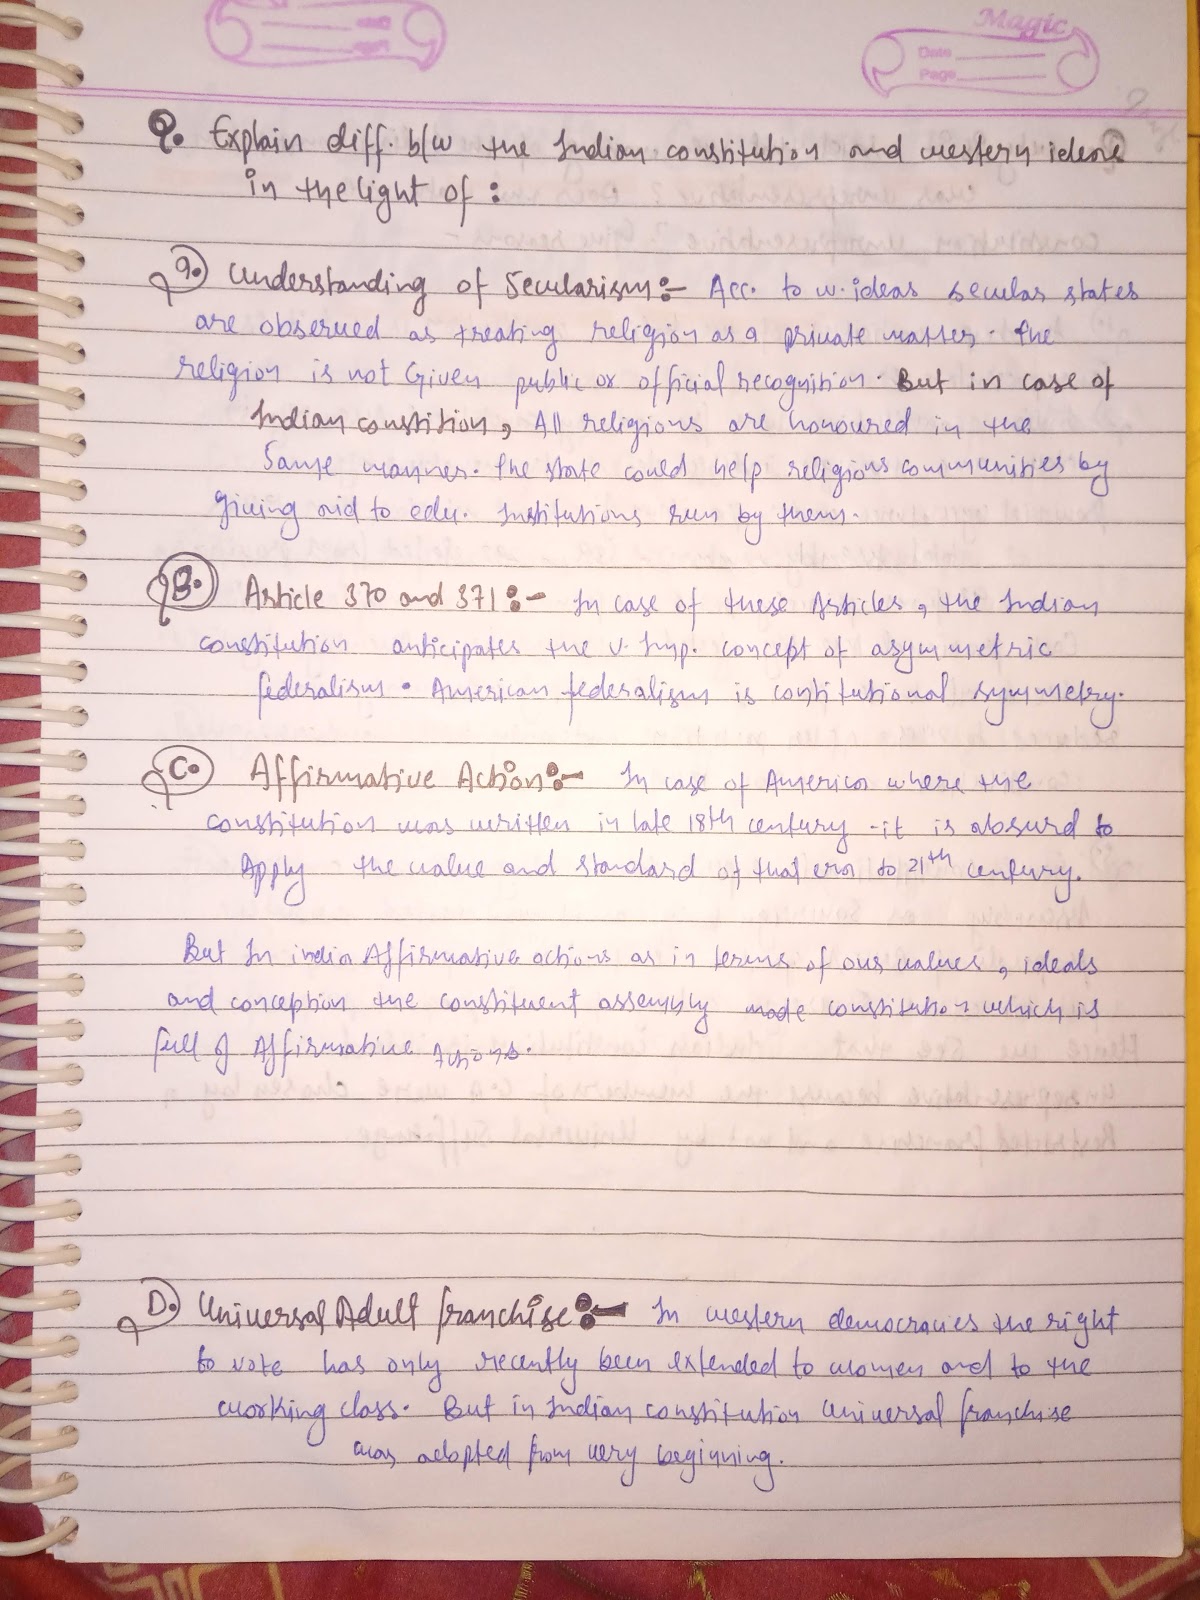 Magic
Date
Page
Q. Explain diff. b/w the Indian constitution and western ideas
in the light of :
a. Understanding of Secularism :- Acc. to w. ideas secular states
are observed as treating religion as a private matter. The
religion is not Given public or official recognition. But in case of
Indian constition, All religions are honoured in the
Same manner. The state could help religious communities by
giving aid to edu. Institutions run by them.
B. Article 370 and 371 :- In case of these Articles, the Indian
constitution anticipates the v. Imp. concept of asymmetric
federalism. American federalism is contitutional symmetry.
C. Affirmative Action :- In case of America where the
constitution was written in late 18th century - it is absurd to
Apply the value and standard of that era to 21th century.
But In india Affirmative actions as in terms of our values, ideals
and conception the constituent assembly made constitution which is
full of Affirmative Actions.
D. Universal Adult franchise :- In western democracies the right
to vote has only recently been extended to women and to the
working class. But in Indian constitution Universal franchise
was adopted from very beginning.